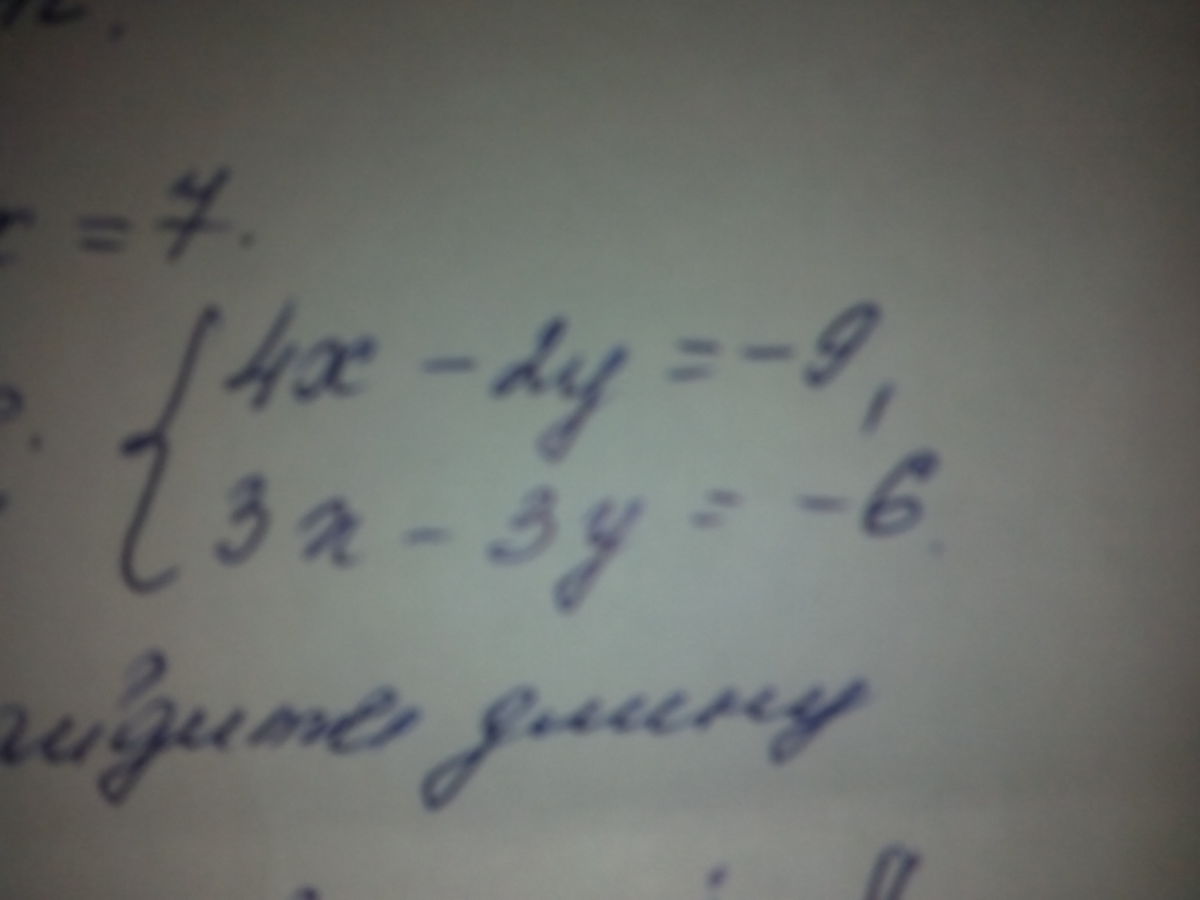 = 7.
{ 4x - 2y = -9,
3x - 3y = -6.
айдите длину